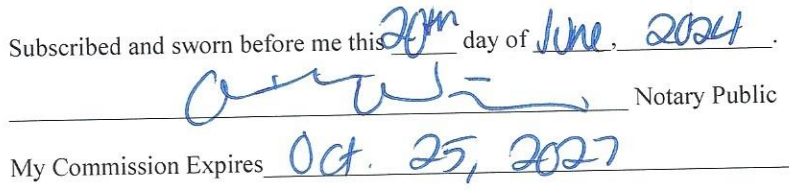 Subscribed and sworn before me this 20th day of June, 2024.
Notary Public
My Commission Expires Oct. 25, 2027